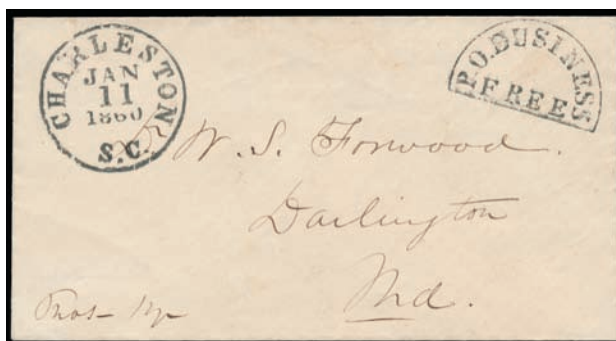 CHARLESTON
JAN
11
1860
S.C.
P.O. BUSINESS
FREE
Dr W. S. Forwood.
Darlington
Md.